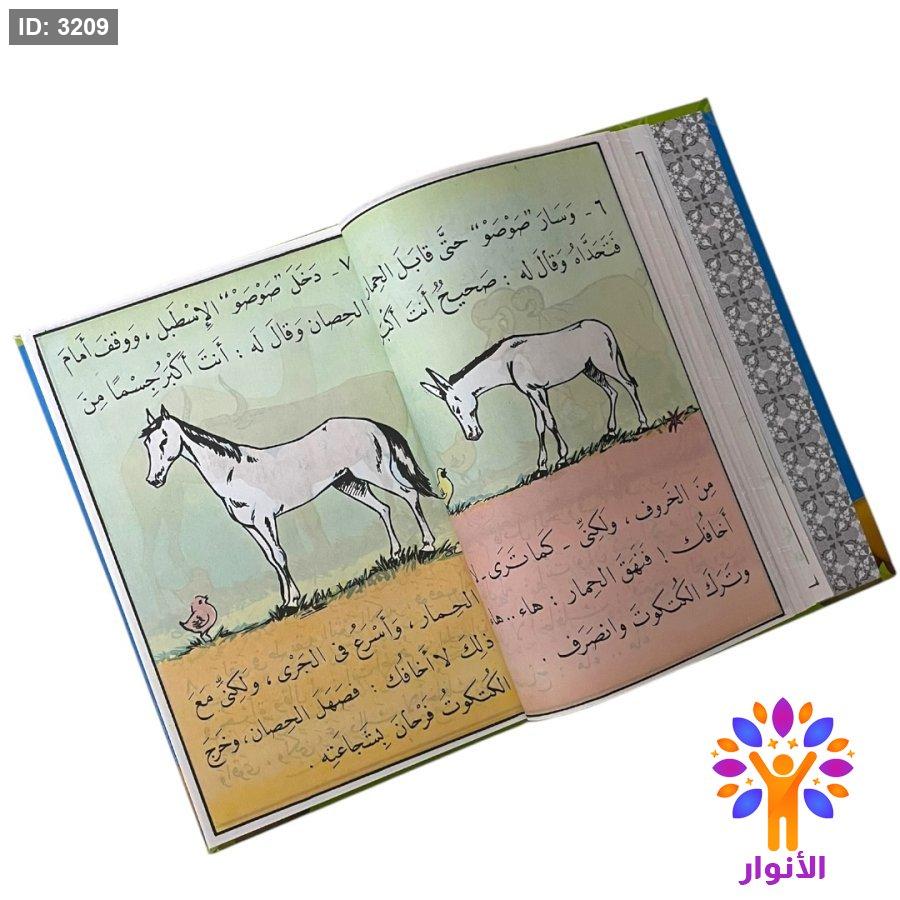 ID: 3209
٦ - وَسَارَ "صَوْصَوْ" حتَّى قابَلَ الحِمار
فَتَحَدَّاهُ وَقالَ له : صَحيحٌ أنتَ أكْبَر
مِنَ الخَروف ، ولَكِنِّى - كَما تَرَى -
أخافُك ! فَنَهَقَ الحِمار : هاء .. هاء
وتَرَكَ الكُتكوتَ وانصَرَف .
٧ - دَخَلَ "صَوْصَوْ" الإسْطَبل ، وَوَقفَ أمامَ
الحِصان وَقالَ له : أنتَ أكْبَرُ جِسْمًا مِنَ
الحِمار ، وَأسْرَعُ فى الجَرْى ، ولَكِنِّى مَعَ
ذلك لا أخافُك : فصَهَلَ الحِصان ، وخَرَجَ
الكُتكوتُ فَرْحانَ بِشَجاعَتِه .
الأنوار